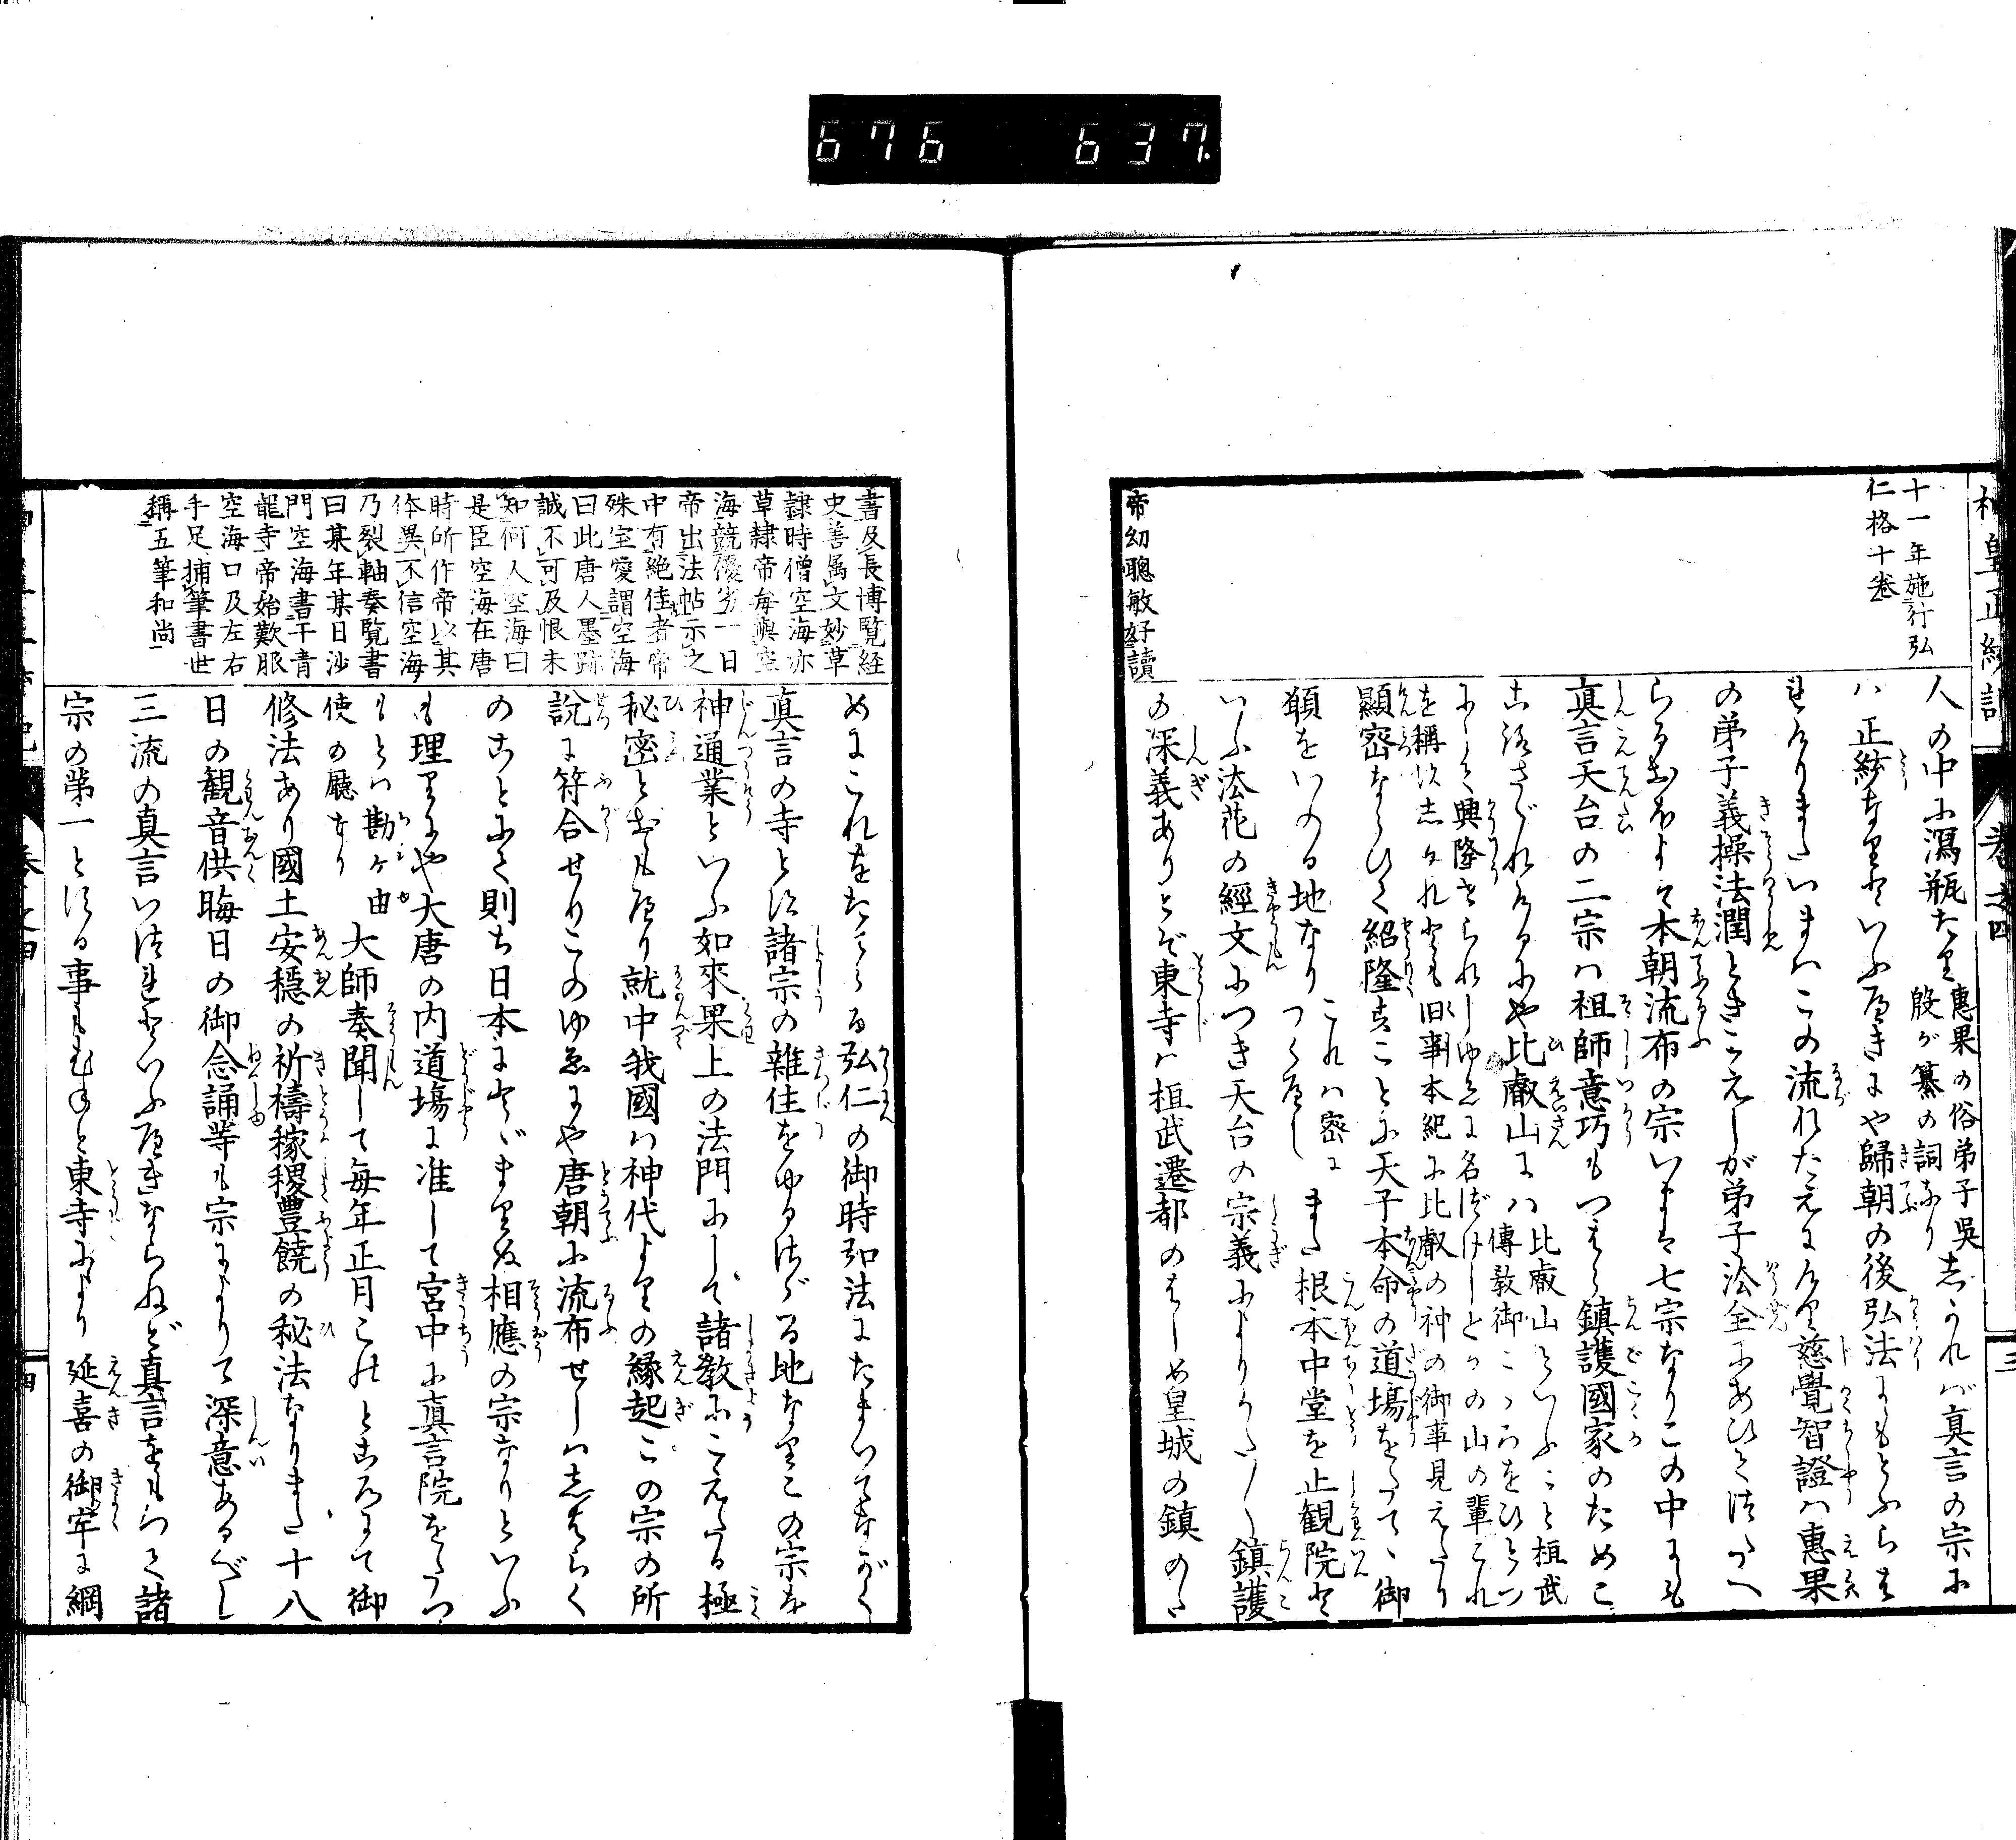 676 637.
神皇正統記
巻之四
三
十一年施行弘
仁格十卷
帝幼聰敏好讀
人の中に瀉瓶たり 惠果の俗弟子呉
殷が纂の詞なり しかれば真言の宗に
は正統なりといふべきにや歸朝の後弘法にもとふらす
けりまたいまはこの流れたえにけり慈覺智證は惠果
の弟子義操法潤ときこえしが弟子法全にあひてつたへ
らるおほよそ本朝流布の宗いまは七宗なりこの中にも
真言天台の二宗は祖師意巧もつはら鎮護國家のためこ
こゝろざされけるにや比叡山には 比叡山といふこと桓武
傳教御こゝろをひとつ
にして興隆せられしゆゑに名づけしとかの山の輩これ
を稱すしかれども旧事本紀に比叡の神の御事見えたり
顯密ならびて紹隆すことに天子本命の道場をたてゝ御
願をいのる地なり これは密に
つくべし また根本中堂を止観院と
いふ法花の經文につき天台の宗義によりかた〳〵鎮護
の深義ありとぞ東寺は桓武遷都のはじめ皇城の鎮のた
書及長博覧経
史善属文妙草
隷時僧空海亦
草隷帝毎與空
海競優劣一日
帝出法帖示之
中有絶佳者帝
殊宝愛謂空海
曰此唐人墨跡
誠不可及恨未
知何人空海曰
是臣空海在唐
時所作帝以其
体異不信空海
乃裂軸奏覧書
曰某年某日沙
門空海書于青
龍寺帝始歎服
空海口及左右
手足捕筆書世
稱五筆和尚
めにこれをたてらる弘仁の御時弘法にたまいてながく
真言の寺とす諸宗の雜住をゆるさざる地なりこの宗を
神通業といふ如來果上の法門にして諸教にこえたる極
秘密とおもへり就中我國は神代よりの縁起この宗の所
説に符合せりこのゆゑにや唐朝に流布せしはしばらく
のことにて則ち日本にとゞまりぬ相應の宗なりといふ
も理りにや大唐の内道塲に准して宮中に真言院をたつ
もとは勘ケ由
使の廳なり 大師奏聞して毎年正月このところにて御
修法あり國土安穩の祈禱稼稷豊饒の秘法なりまた十八
日の観音供晦日の御念誦等も宗によりて深意あるべし
三流の真言いづれといふべきならねど真言をもつて諸
宗の第一とする事もむねと東寺により 延喜の御宇に綱